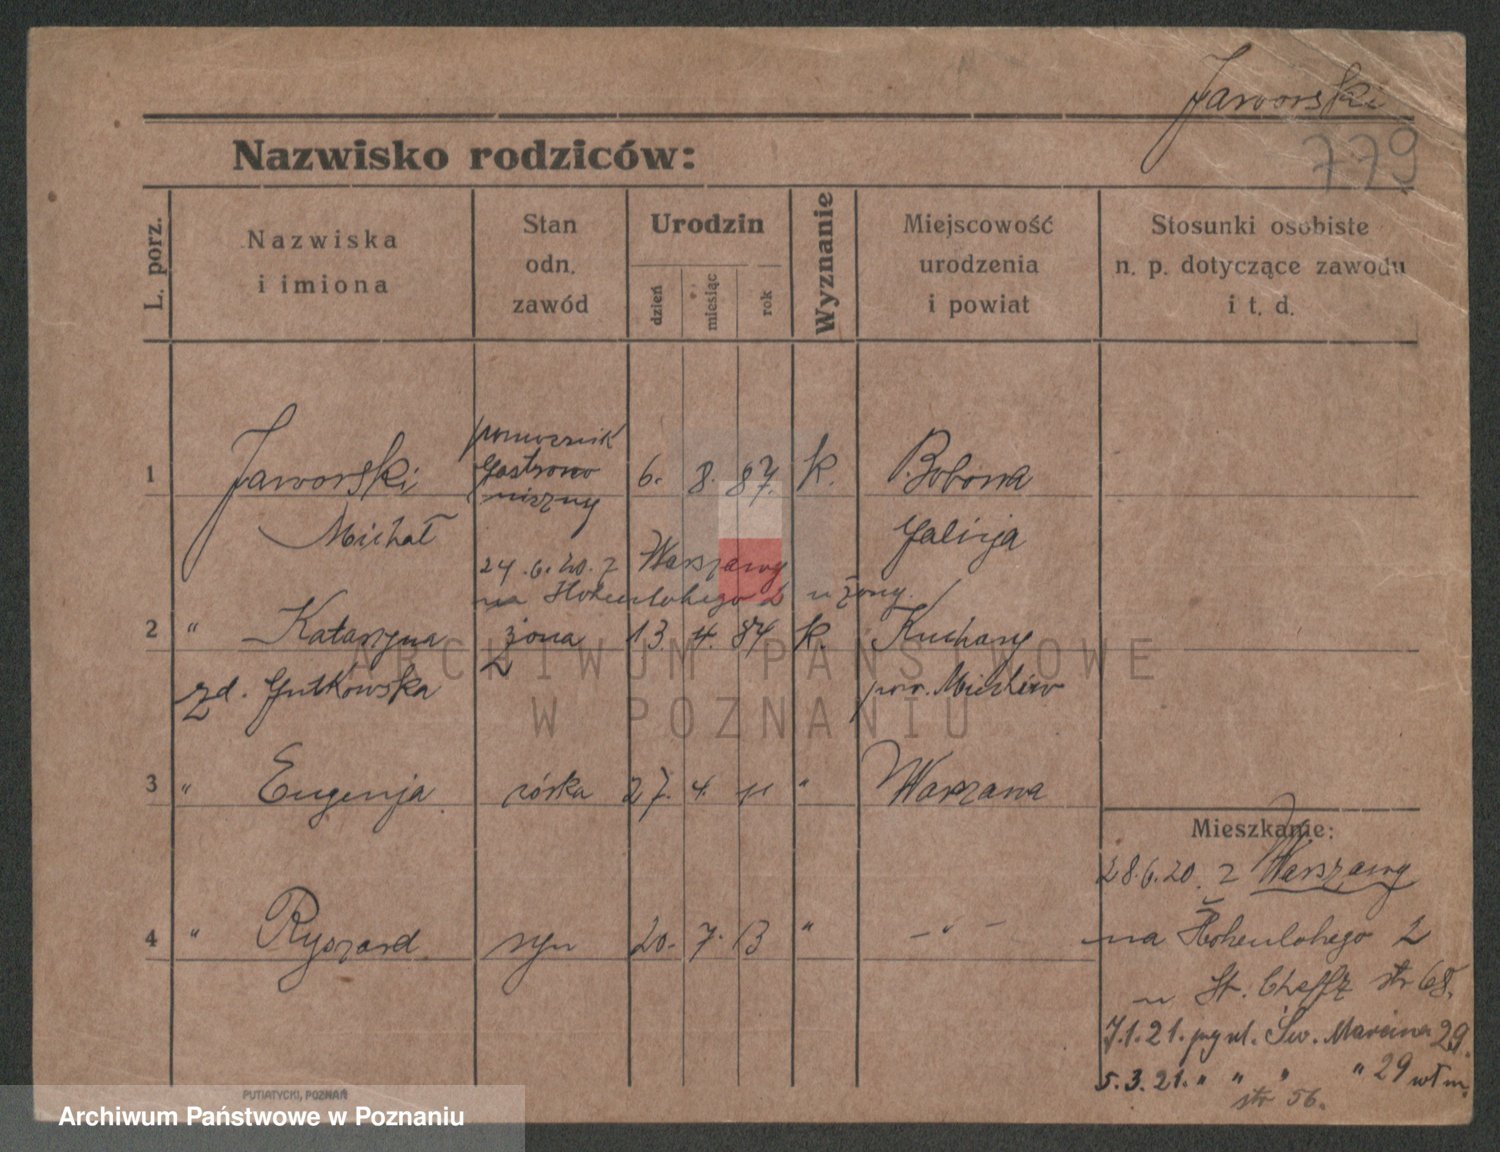 Jaworski
779
Nazwisko rodziców:
L. porz.
Nazwiska
i imiona
Stan
odn.
zawód
Urodzin
dzień
miesiąc
rok
Wyznanie
Miejscowość
urodzenia
i powiat
Stosunki osobiste
n. p. dotyczące zawodu
i t. d.
pomocnik
1 Jaworski gastrono 6. 8. 87. k. Bobowa
niczny
Michał Galicja
24.6.20. z Warszawy
na Hohenlohego 2 u żony.
2 " Katarzyna żona 13 4. 84 k. Kuchary
zd. Gutkowska pow. Miechów
3 " Eugenja córka 27. 4. 11 " Warszawa
4 " Ryszard syn 20. 7. 13 " - " -
Mieszkanie:
28.6.20. z Warszawy
na Hohenlohego 2
u St. str 68.
7.1.21. ul. Św. Marcina 29.
5.3.21. " " " " 29 wł m.
str 56.
PUTIATYCKI, POZNAŃ
ARCHIWUM PAŃSTWOWE
W POZNANIU
Archiwum Państwowe w Poznaniu